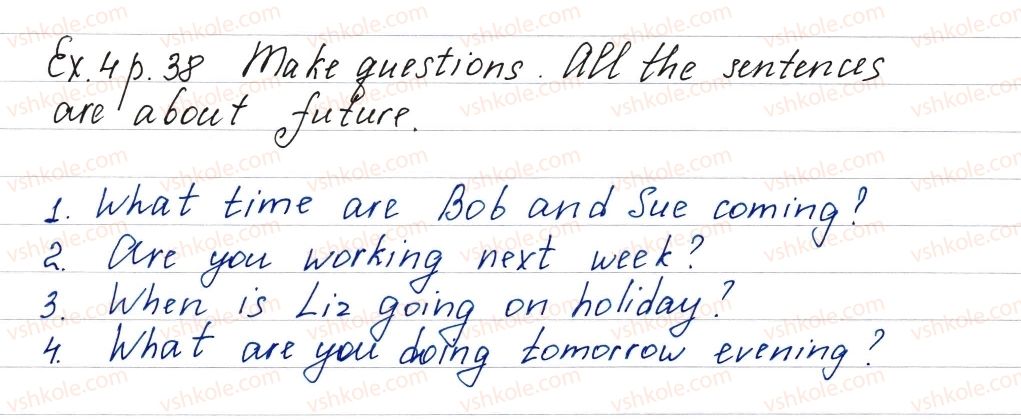 Ex. 4 p. 38 Make questions. All the sentences
are about future.
1. What time are Bob and Sue coming?
2. Are you working next week?
3. When is Liz going on holiday?
4. What are you doing tomorrow evening?
vshkole.com